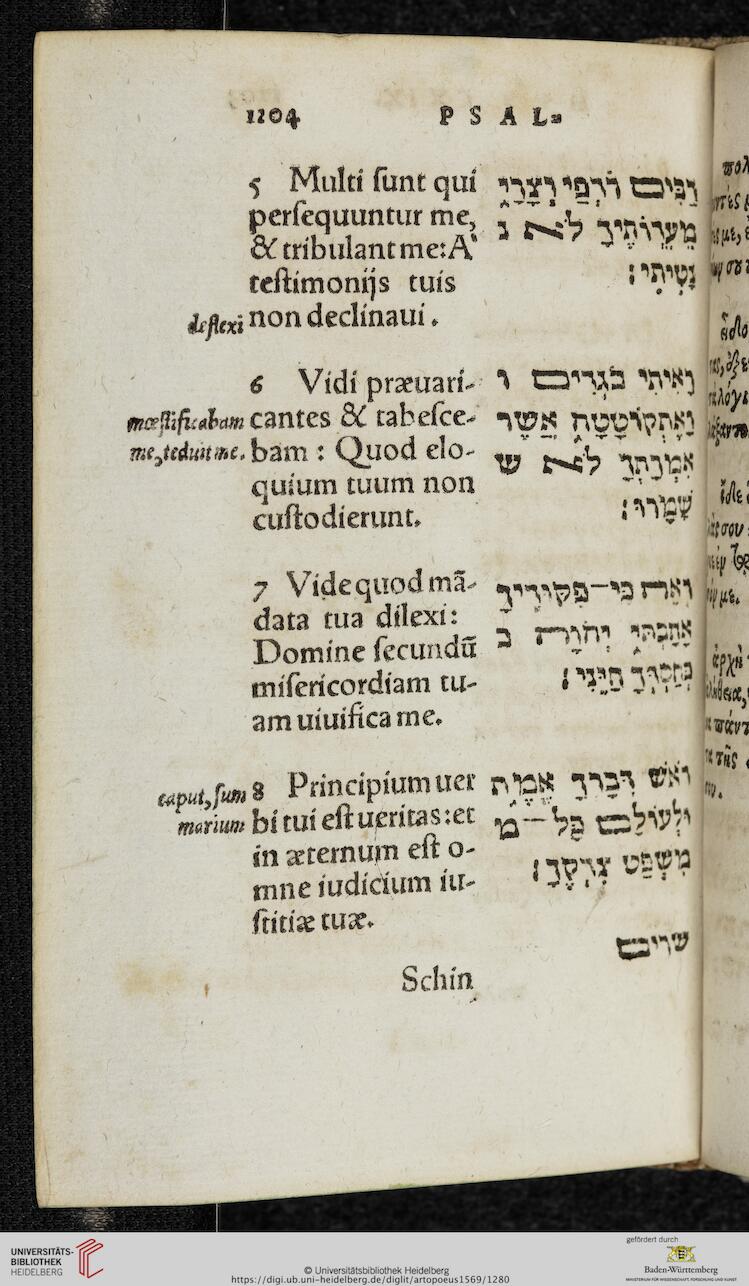 1104 PSAL⸗
5 Multi ſunt qui
perſequuntur me,
& tribulant me: A'
teſtimonijs tuis
non declinaui.
deflexi
6 Vidi præuari-
cantes & tabeſce-
bam: Quod elo-
quium tuum non
cuſtodierunt.
mœſtificabam
me, teduit me.
7 Vide quod mā-
data tua dilexi:
Domine ſecundū
miſericordiam tu-
am uiuifica me.
8 Principium uer
bi tui eſt ueritas: et
in æternum eſt o-
mne iudicium iu-
ſtitiæ tuæ.
caput, ſum
marium
Schin
רַבִּים רֹדְפַי וְצָרָי
מֵעֵדְוֹתֶיךָ לֹא נ
נָטִיתִי׃
רָאִיתִי בֹגְדִים ו
וָאֶתְקוֹטָטָה אֲשֶׁר
אִמְרָתְךָ לֹא ש
שָׁמָרוּ׃
רְאֵה כִּי־פִקּוּדֶיךָ
אָהָבְתִּי יְהוָה כ
כְּחַסְדְּךָ חַיֵּנִי׃
רֹאשׁ דְּבָרְךָ אֱמֶת
וּלְעוֹלָם כָּל־מ
מִשְׁפַּט צִדְקֶךָ׃
שרים
UNIVERSITÄTS-
BIBLIOTHEK
HEIDELBERG
© Universitätsbibliothek Heidelberg
https://digi.ub.uni-heidelberg.de/diglit/artopoeus1569/1280
gefördert durch
Baden-Württemberg
MINISTERIUM FÜR WISSENSCHAFT, FORSCHUNG UND KUNST